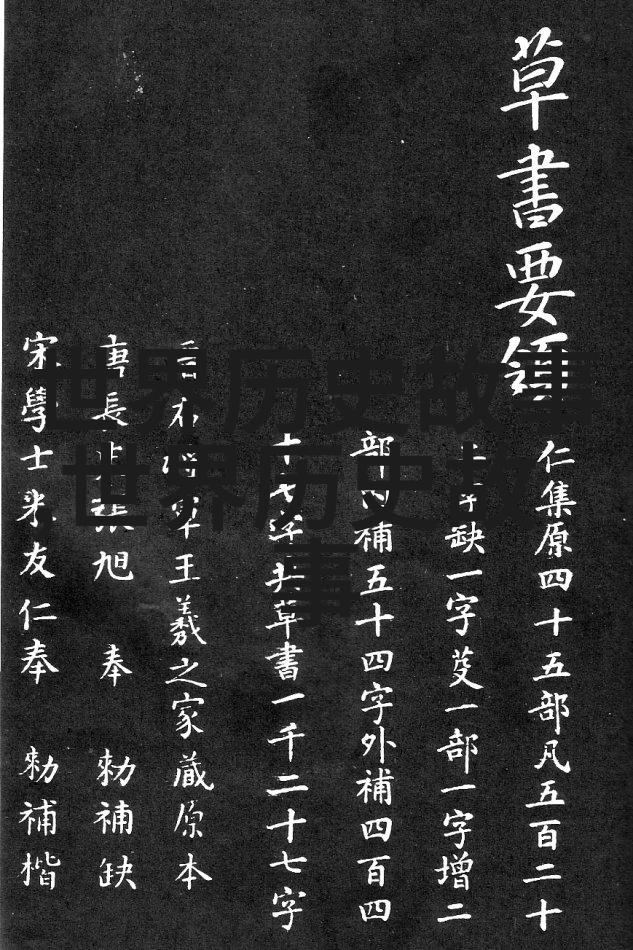 草書要領
仁集原四十五部凡五百二十
字缺一字芟一部一字增二
部内補五十四字外補四百四
十七字共草書一千二十七字
晉右將軍王羲之家藏原本
唐長史張旭 奉 勅補缺
宋學士米友仁奉 勅補楷
世界历史故事
世界历史故
事